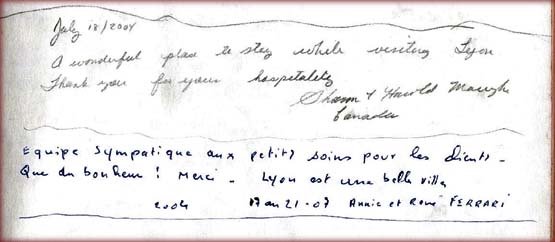 July 18/2004
A wonderful place to stay while visiting Lyon
Thank you for your hospitality
& Harold
Canada
Equipe Sympatique aux petits soins pour les clients -
Que du bonheur ! Merci - Lyon est une belle ville
2004 17 au 21-07 Annie et René FERRARI